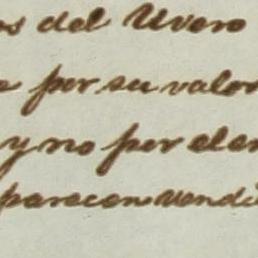 os del Uvero
por su valor
y no por el en
parecen vendi